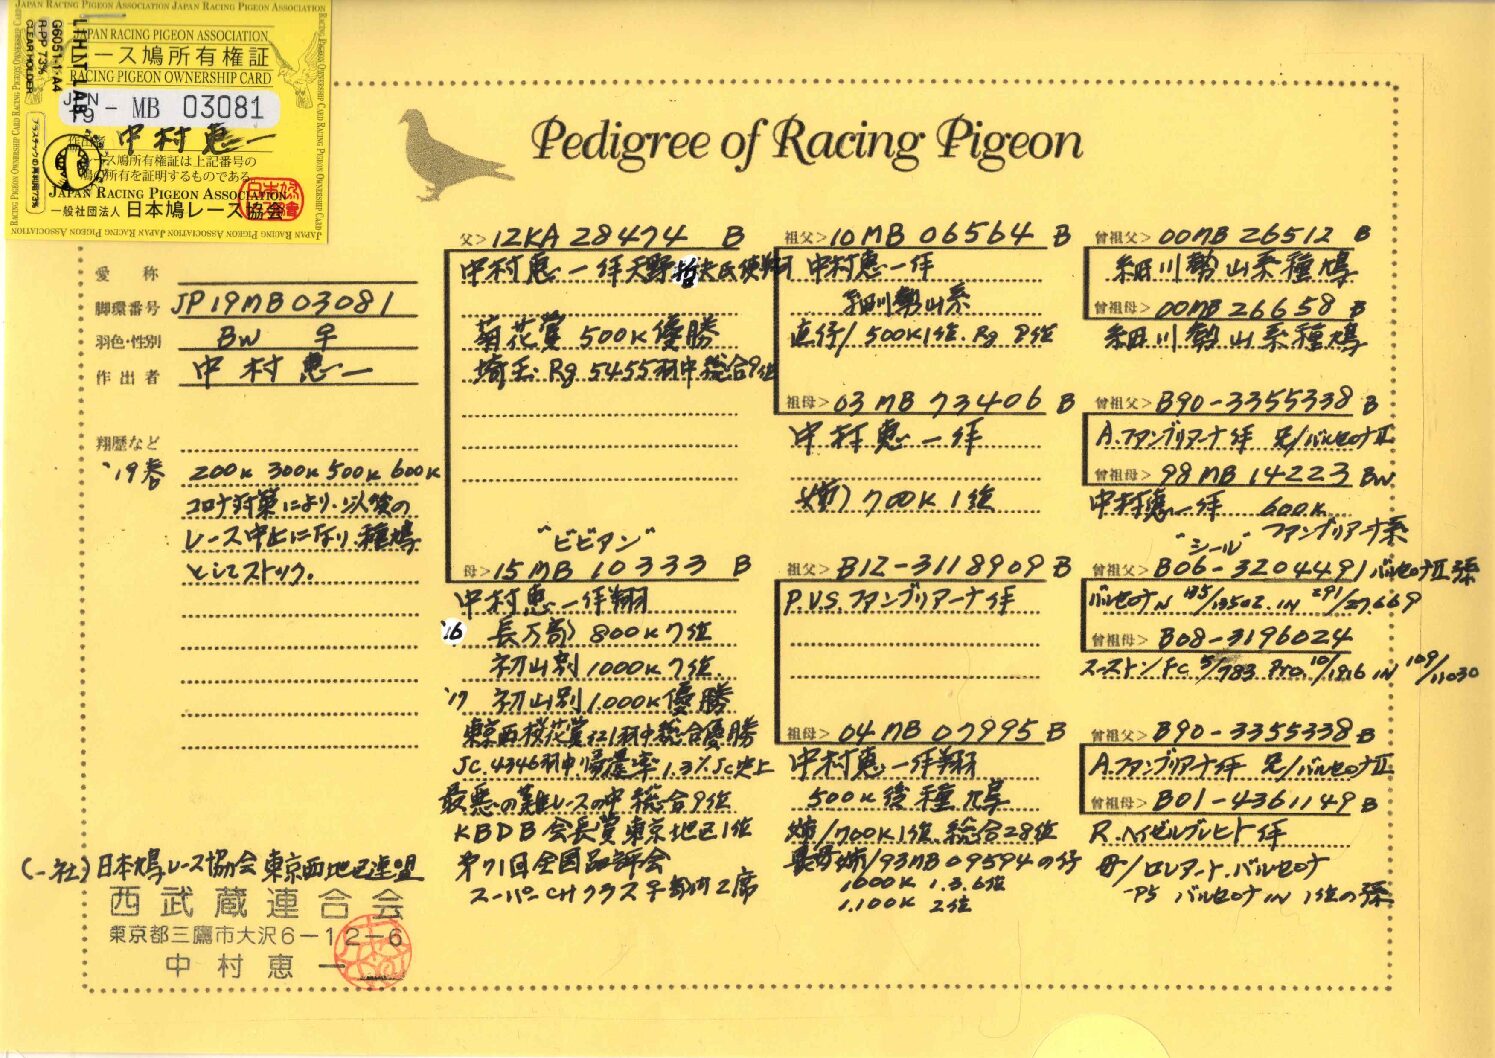 JAPAN RACING PIGEON ASSOCIATION JAPAN RACING PIGEON ASSOCIATION
JAPAN RACING PIGEON ASSOCIATION
ース鳩所有権証
RACING PIGEON OWNERSHIP CARD
JPN
19 - MB 03081
中村恵一
ース鳩所有権証は上記番号の
所有を証明するものである
JAPAN RACING PIGEON ASSOCIATION
一般社団法人 日本鳩レース協会
LIHIT LAB
G6051-1-A4
R-PP 73%
CLEAR HOLDER
Pedigree of Racing Pigeon
愛称
脚環番号 JP19MB03081
羽色・性別 BW ♀
作出者 中村恵一
翔歴など
'19春 200K 300K 500K 600K
コロナ対策により、以後の
レース中止になり、種鳩
としてストック。
父> 12KA 28474 B
中村恵一作天野 氏使翔
菊花賞 500K優勝
埼玉Rg 5455羽中総合9位
"ビビアン"
母> 15MB 10333 B
中村恵一作翔
'16 長万部 800K7位
初山別 1000K7位
'17 初山別 1.000K優勝
東京西桜花賞 羽中総合優勝
JC.4346羽中帰還率1.3%JC史上
最悪の難レースの中総合9位
KBDB会長賞東京地区1位
第71回全国品評会
スーパーCHクラス 2席
祖父> 10MB 06564 B
中村恵一作
細川勢山系
直仔/500K1位.Rg 8位
祖母> 03MB 73406 B
中村恵一作
700K 1位
祖父> B12-3118909 B
P.V.S.ファンブリアーナ作
祖母> 04MB 07995 B
中村恵一作翔
500K後種鳩
娘/700K1位.総合28位
93MB09594の仔
1000K 1.3.6位
1.100K 2位
曽祖父> 00MB 26512 B
細川勢山系種鳩
曽祖母> 00MB 26658 B
細川勢山系種鳩
曽祖父> B90-3355338 B
A.ファンブリアーナ作 兄/バルセロナII
曽祖母> 98MB 14223 BW
中村恵一作 600K
ファンブリアーナ系
"シール"
曽祖父> B06-3204491 バルセロナII孫
バルセロナN 185/13502.IN 291/27669
曽祖母> B08-3196024
スーストンFC 5/783 Pro.10/1916 IN 109/11030
曽祖父> B90-3355338 B
A.ファンブリアーナ作 兄/バルセロナII
曽祖母> B01-4361149 B
R.ヘイゼルブレヒト作
母/ロレアート.バルセロナ
-95 バルセロナIN 1位の孫
(一社)日本鳩レース協会東京西地区連盟
西武蔵連合会
東京都三鷹市大沢6-12-6
中村恵一